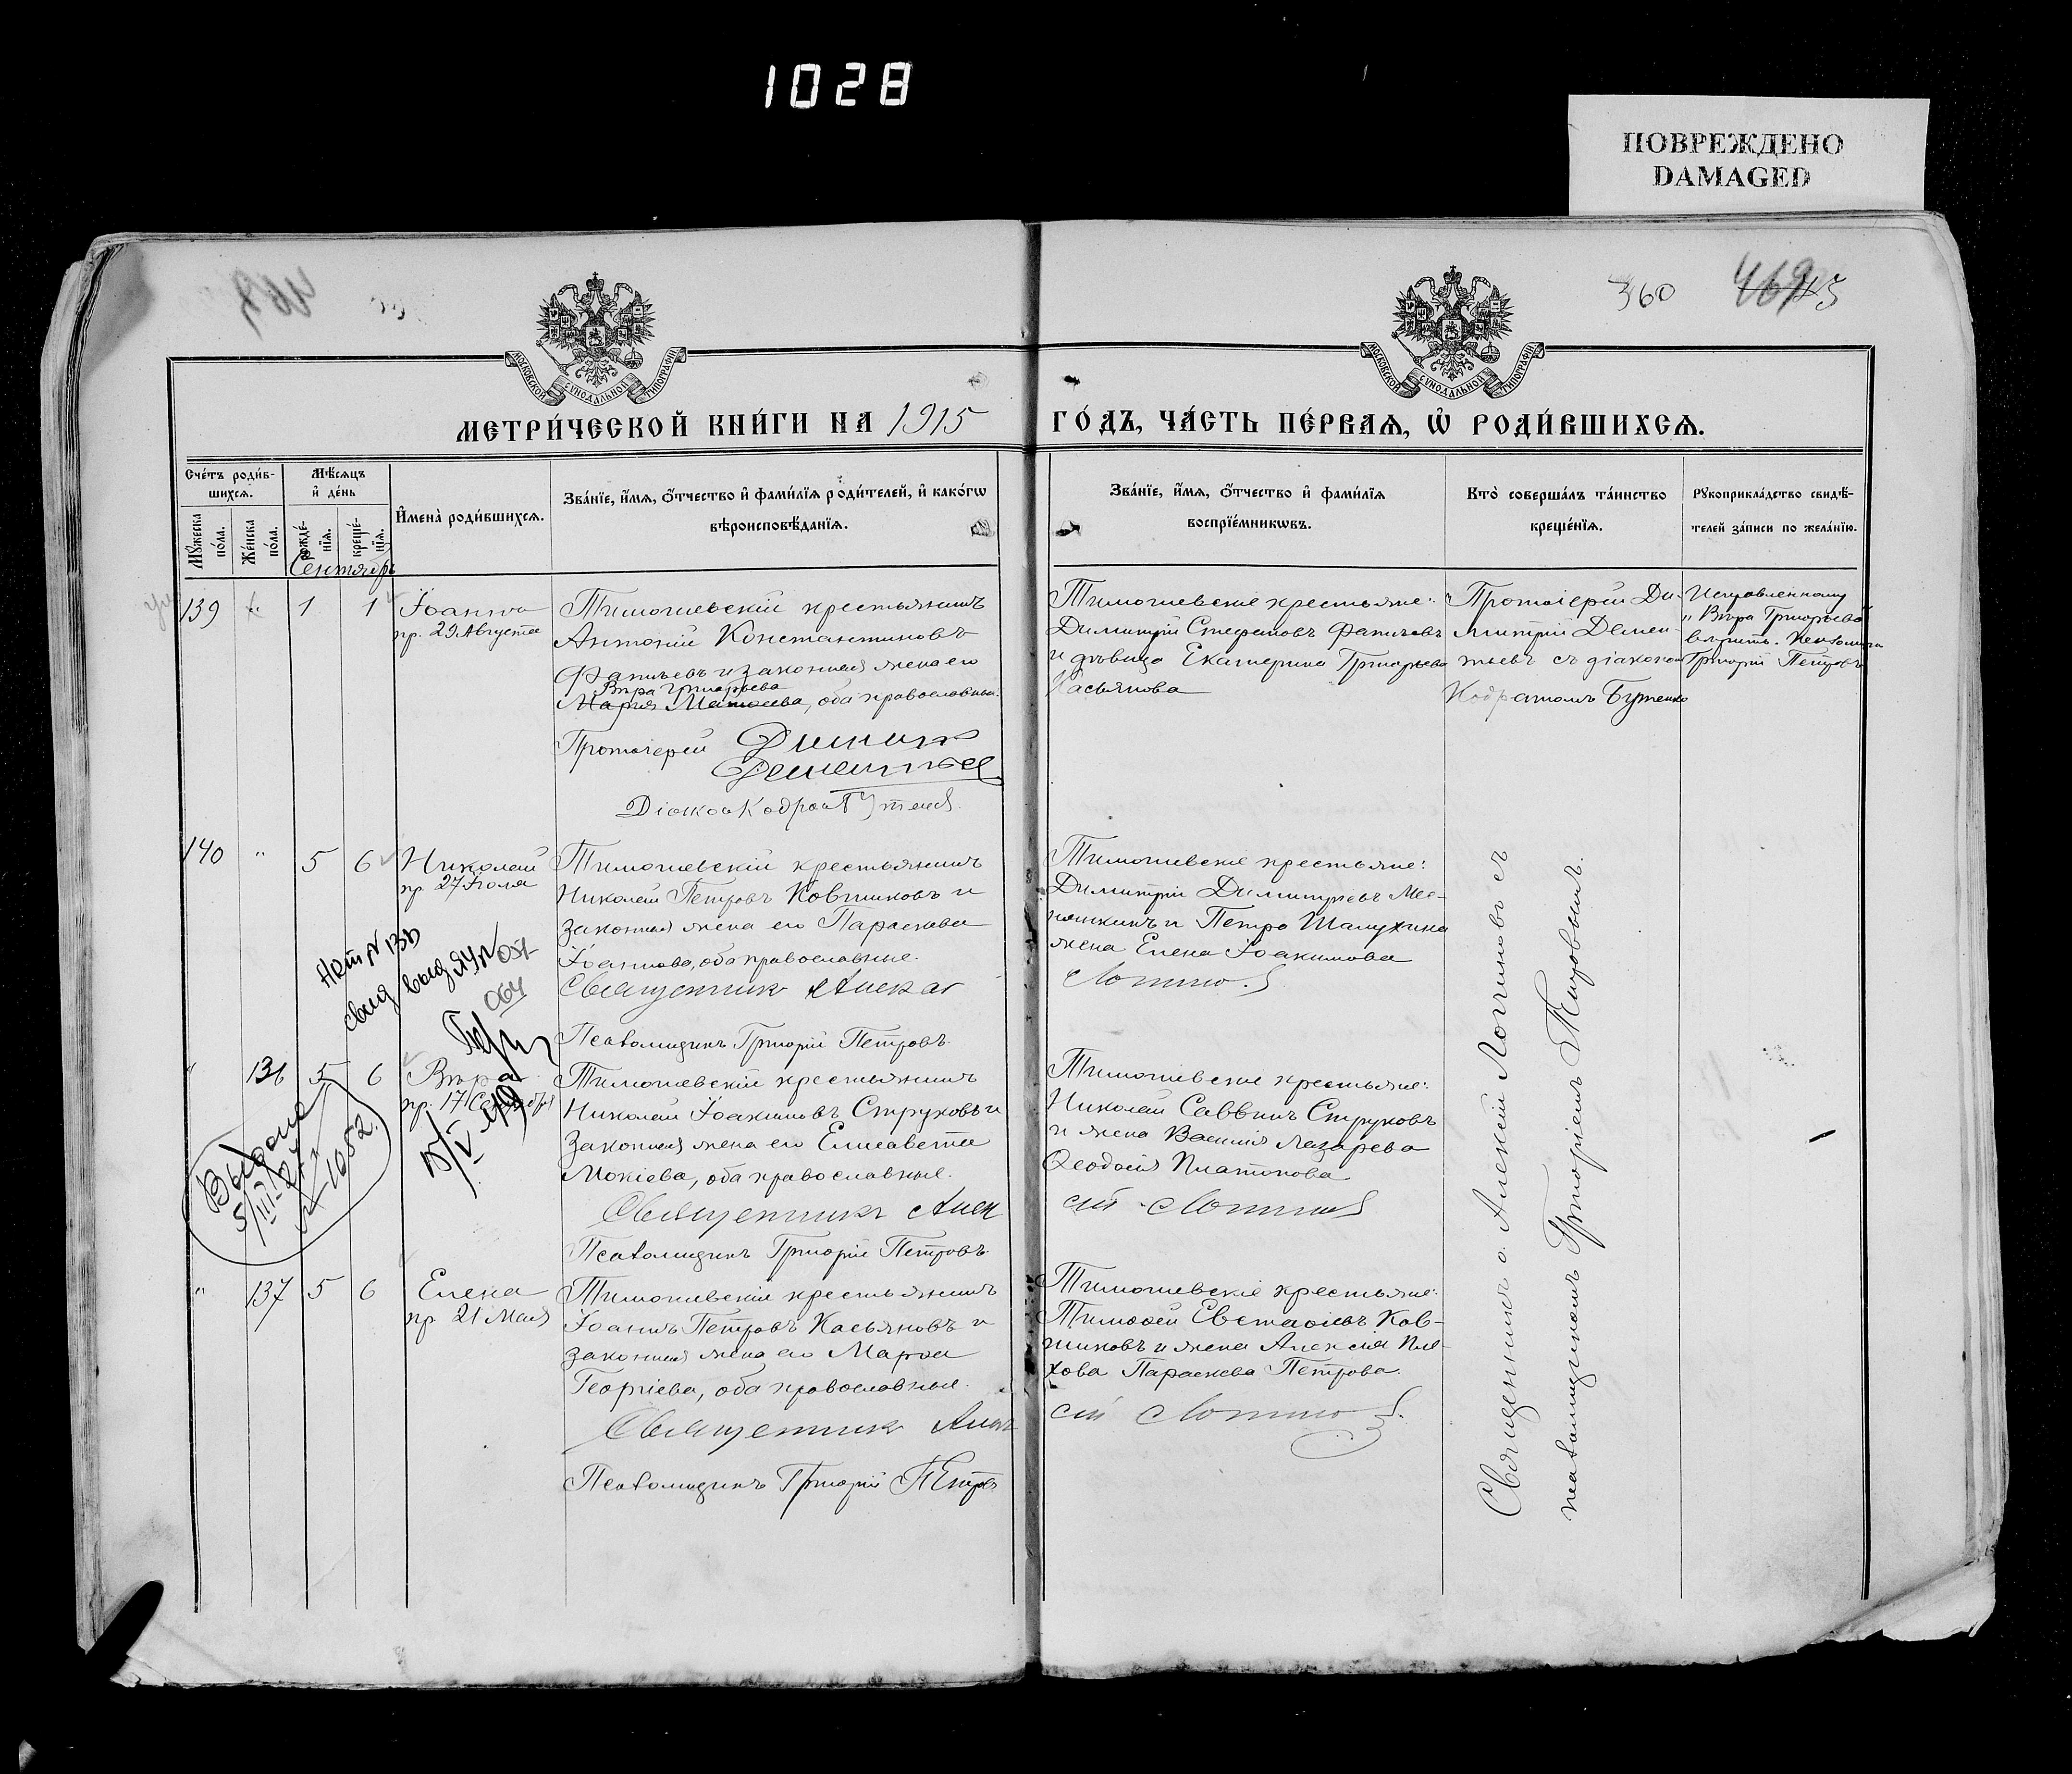 1028
ПОВРЕЖДЕНО
DAMAGED
360
469
МОСКОВСКОЙ СѴНОДАЛЬНОЙ ТИПОГРАФІИ
МОСКОВСКОЙ СѴНОДАЛЬНОЙ ТИПОГРАФІИ
МЕТРИ́ЧЕСКОЙ КНИ́ГИ НА 1915
ГО́ДЪ, ЧА́СТЬ ПЕ́РВАѦ, Ѡ҆ РОДИ́ВШИХСѦ.
Сче́тъ роди́в-
шихсѧ.
Мꙋ́жеска по́ла.
Же́нска по́ла.
Мѣ́сѧцъ
и҆ де́нь
рожде́-
нїѧ.
креще́-
нїѧ.
И҆мена̀ роди́вшихсѧ.
Зва́нїе, и҆́мѧ, ѻ҆́тчество и҆ фами́лїѧ роди́телей, и҆ како́гѡ
вѣроисповѣ́данїѧ.
Зва́нїе, и҆́мѧ, ѻ҆́тчество и҆ фами́лїѧ
воспрїе́мникѡвъ.
Кто̀ соверша́лъ та́инство
креще́нїѧ.
Рꙋкоприкла́дство свидѣ́-
телей за́писи по жела́нїю.
Сентябрь
139
1
1
Іоаннъ
пр. 29 Августа
Тимошевскій крестьянинъ
Антоній Константиновъ
и законная жена его
Вѣра Григорьева
Марія Матѳеева, оба православные.
Протоіерей Димитр
Дементьев
Тимошевскіе крестьяне:
Димитрій Стефановъ
и дѣвица Екатерина Григорьева
Касьянова
Протоіерей Ди-
митрій Демен-
тьевъ съ діакономъ
Кодратомъ Бутенко
Исправленному
„Вѣра Григорьева
вѣрить. Псаломщикъ
Григорій Петровъ
140
"
5
6
Николай
пр. 27 Іюля
Тимошевскій крестьянинъ
Николай Петровъ Ковшиковъ и
законная жена его Параскева
Іоаннова, оба православные.
Священник Алекс
Псаломщикъ Григорій Петровъ
Тимошевскіе крестьяне:
Димитрій Димитріевъ
и Петра Шалухина
жена Елена Іоакимова
Логинов
"
136
5
6
Вѣра
пр. 17 Сентября
Тимошевскій крестьянинъ
Николай Іоакимовъ Струковъ и
законная жена его Елисавета
Мокіева, оба православные.
Священникъ Алек
Псаломщикъ Григорій Петровъ
Тимошевскіе крестьяне:
Николай Саввинъ Струковъ
и жена Василія Лазарева
Ѳеодосія Платонова
сій Логинов
Выдано
№ 1052
"
137
5
6
Елена
пр. 21 Мая
Тимошевскій крестьянинъ
Іоаннъ Петровъ Касьяновъ и
законная жена его Марѳа
Георгіева, оба православные.
Священник Алек
Псаломщикъ Григорій Петровъ
Тимошевскіе крестьяне:
Тимоѳей Евстаѳіевъ Ков-
шиковъ и жена Алексія Пле-
хова Параскева Петрова.
сій Логинов
Священникъ о. Алексій Логиновъ съ
псаломщикомъ Григоріемъ Петровымъ.